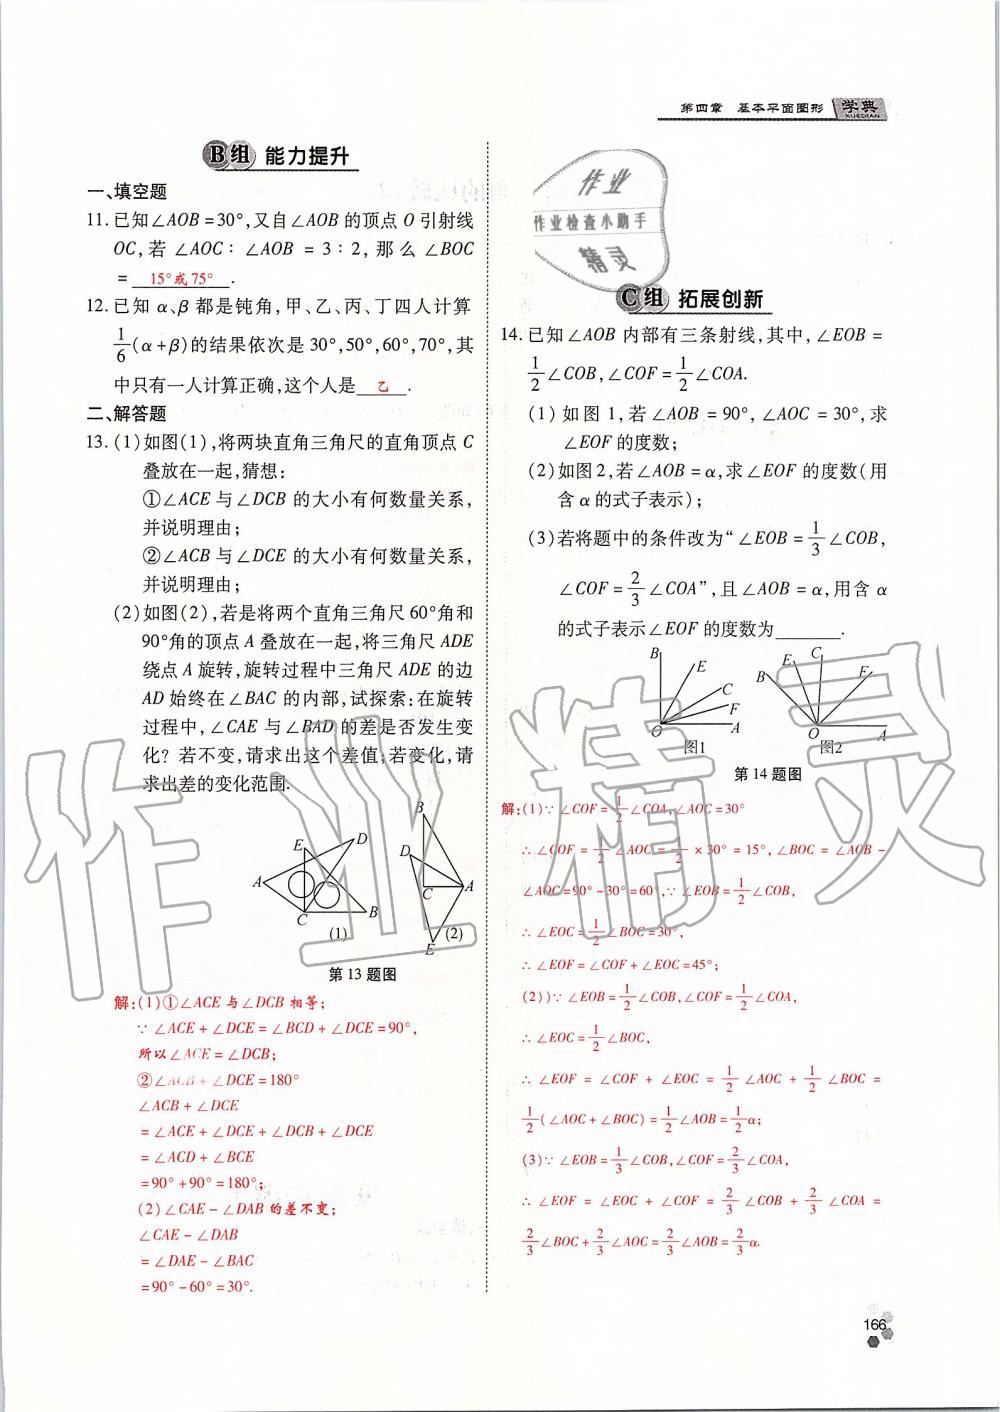 第四章 基本平面图形 学典
XUEDIAN
B组 能力提升
一、填空题
11.已知∠AOB=30°,又自∠AOB的顶点O引射线
OC,若∠AOC∶∠AOB=3∶2,那么∠BOC
= 15°或75° .
12.已知α、β都是钝角,甲、乙、丙、丁四人计算
1/6(α+β)的结果依次是30°,50°,60°,70°,其
中只有一人计算正确,这个人是 乙 .
二、解答题
13.(1)如图(1),将两块直角三角尺的直角顶点C
叠放在一起,猜想:
①∠ACE与∠DCB的大小有何数量关系,
并说明理由;
②∠ACB与∠DCE的大小有何数量关系,
并说明理由;
(2)如图(2),若是将两个直角三角尺60°角和
90°角的顶点A叠放在一起,将三角尺ADE
绕点A旋转,旋转过程中三角尺ADE的边
AD始终在∠BAC的内部,试探索:在旋转
过程中,∠CAE与∠BAD的差是否发生变
化?若不变,请求出这个差值;若变化,请
求出差的变化范围.
A E D C B (1)
B D C A E (2)
第13题图
解:(1)①∠ACE与∠DCB相等;
∵∠ACE+∠DCE=∠BCD+∠DCE=90°,
所以∠ACE=∠DCB;
②∠ACB+∠DCE=180°
∠ACB+∠DCE
=∠ACE+∠DCE+∠DCB+∠DCE
=∠ACD+∠BCE
=90°+90°=180°;
(2)∠CAE-∠DAB的差不变;
∠CAE-∠DAB
=∠DAE-∠BAC
=90°-60°=30°.
作业
作业检查小助手
精灵
C组 拓展创新
14.已知∠AOB内部有三条射线,其中,∠EOB=
1/2∠COB,∠COF=1/2∠COA.
(1)如图1,若∠AOB=90°,∠AOC=30°,求
∠EOF的度数;
(2)如图2,若∠AOB=α,求∠EOF的度数(用
含α的式子表示);
(3)若将题中的条件改为“∠EOB=1/3∠COB,
∠COF=2/3∠COA”,且∠AOB=α,用含α
的式子表示∠EOF的度数为________.
B E C F A O 图1
B E C F O A 图2
第14题图
解:(1)∵∠COF=1/2∠COA,∠AOC=30°
∴∠COF=1/2∠AOC=1/2×30°=15°,∠BOC=∠AOB-
∠AOC=90°-30°=60°,∵∠EOB=1/2∠COB,
∴∠EOC=1/2∠BOC=30°,
∴∠EOF=∠COF+∠EOC=45°;
(2))∵∠EOB=1/2∠COB,∠COF=1/2∠COA,
∴∠EOC=1/2∠BOC,
∴∠EOF=∠COF+∠EOC=1/2∠AOC+1/2∠BOC=
1/2(∠AOC+∠BOC)=1/2∠AOB=1/2α;
(3)∵∠EOB=1/3∠COB,∠COF=2/3∠COA,
∴∠EOF=∠EOC+∠COF=2/3∠COB+2/3∠COA=
2/3∠BOC+2/3∠AOC=2/3∠AOB=2/3α.
作业精灵
166